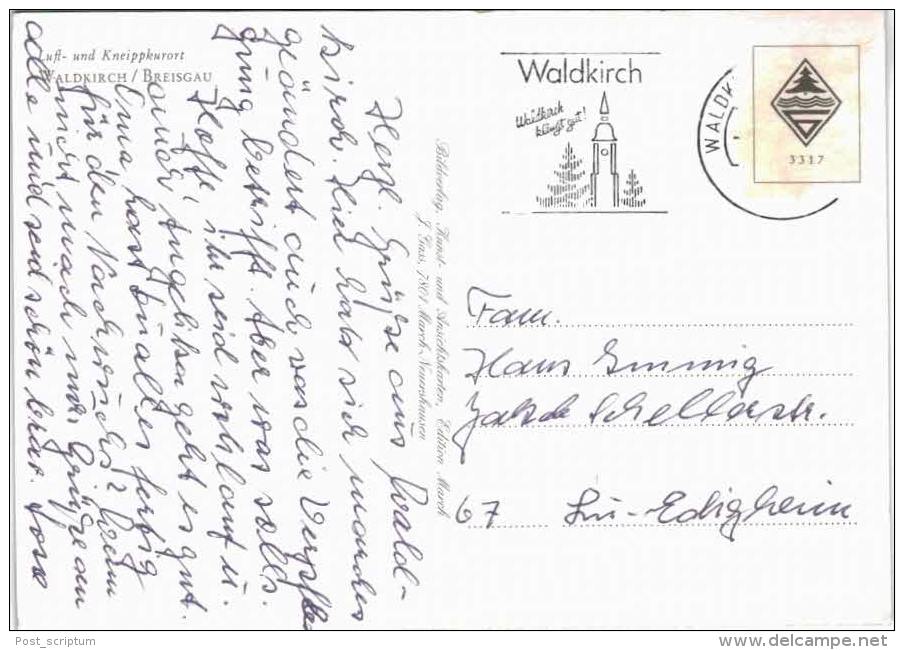 Luft- und Kneippkurort
WALDKIRCH / BREISGAU
Herzl. Grüße aus Wald-
kirch. Hier hat sich manches
geändert auch was die Verpfle
gung betrifft. Aber was solls.
Hoffe, ihr seid wohlauf u.
Angelika geht es gut.
Oma, hast du alles fertig
für den Nachwuchs?
mich und Grüße an
alle und seid schön brav.
Bildverlag, Kunst- und Ansichtskarten, Edition March
J. Gass, 7801 March-Neuershausen
Waldkirch
Waldkirch
klingt gut!
WALDK
3317
Fam.
Hans Emmig
Jakob Schellerstr.
67 Lu-Edigheim
Post_scriptum
www.delcampe.net